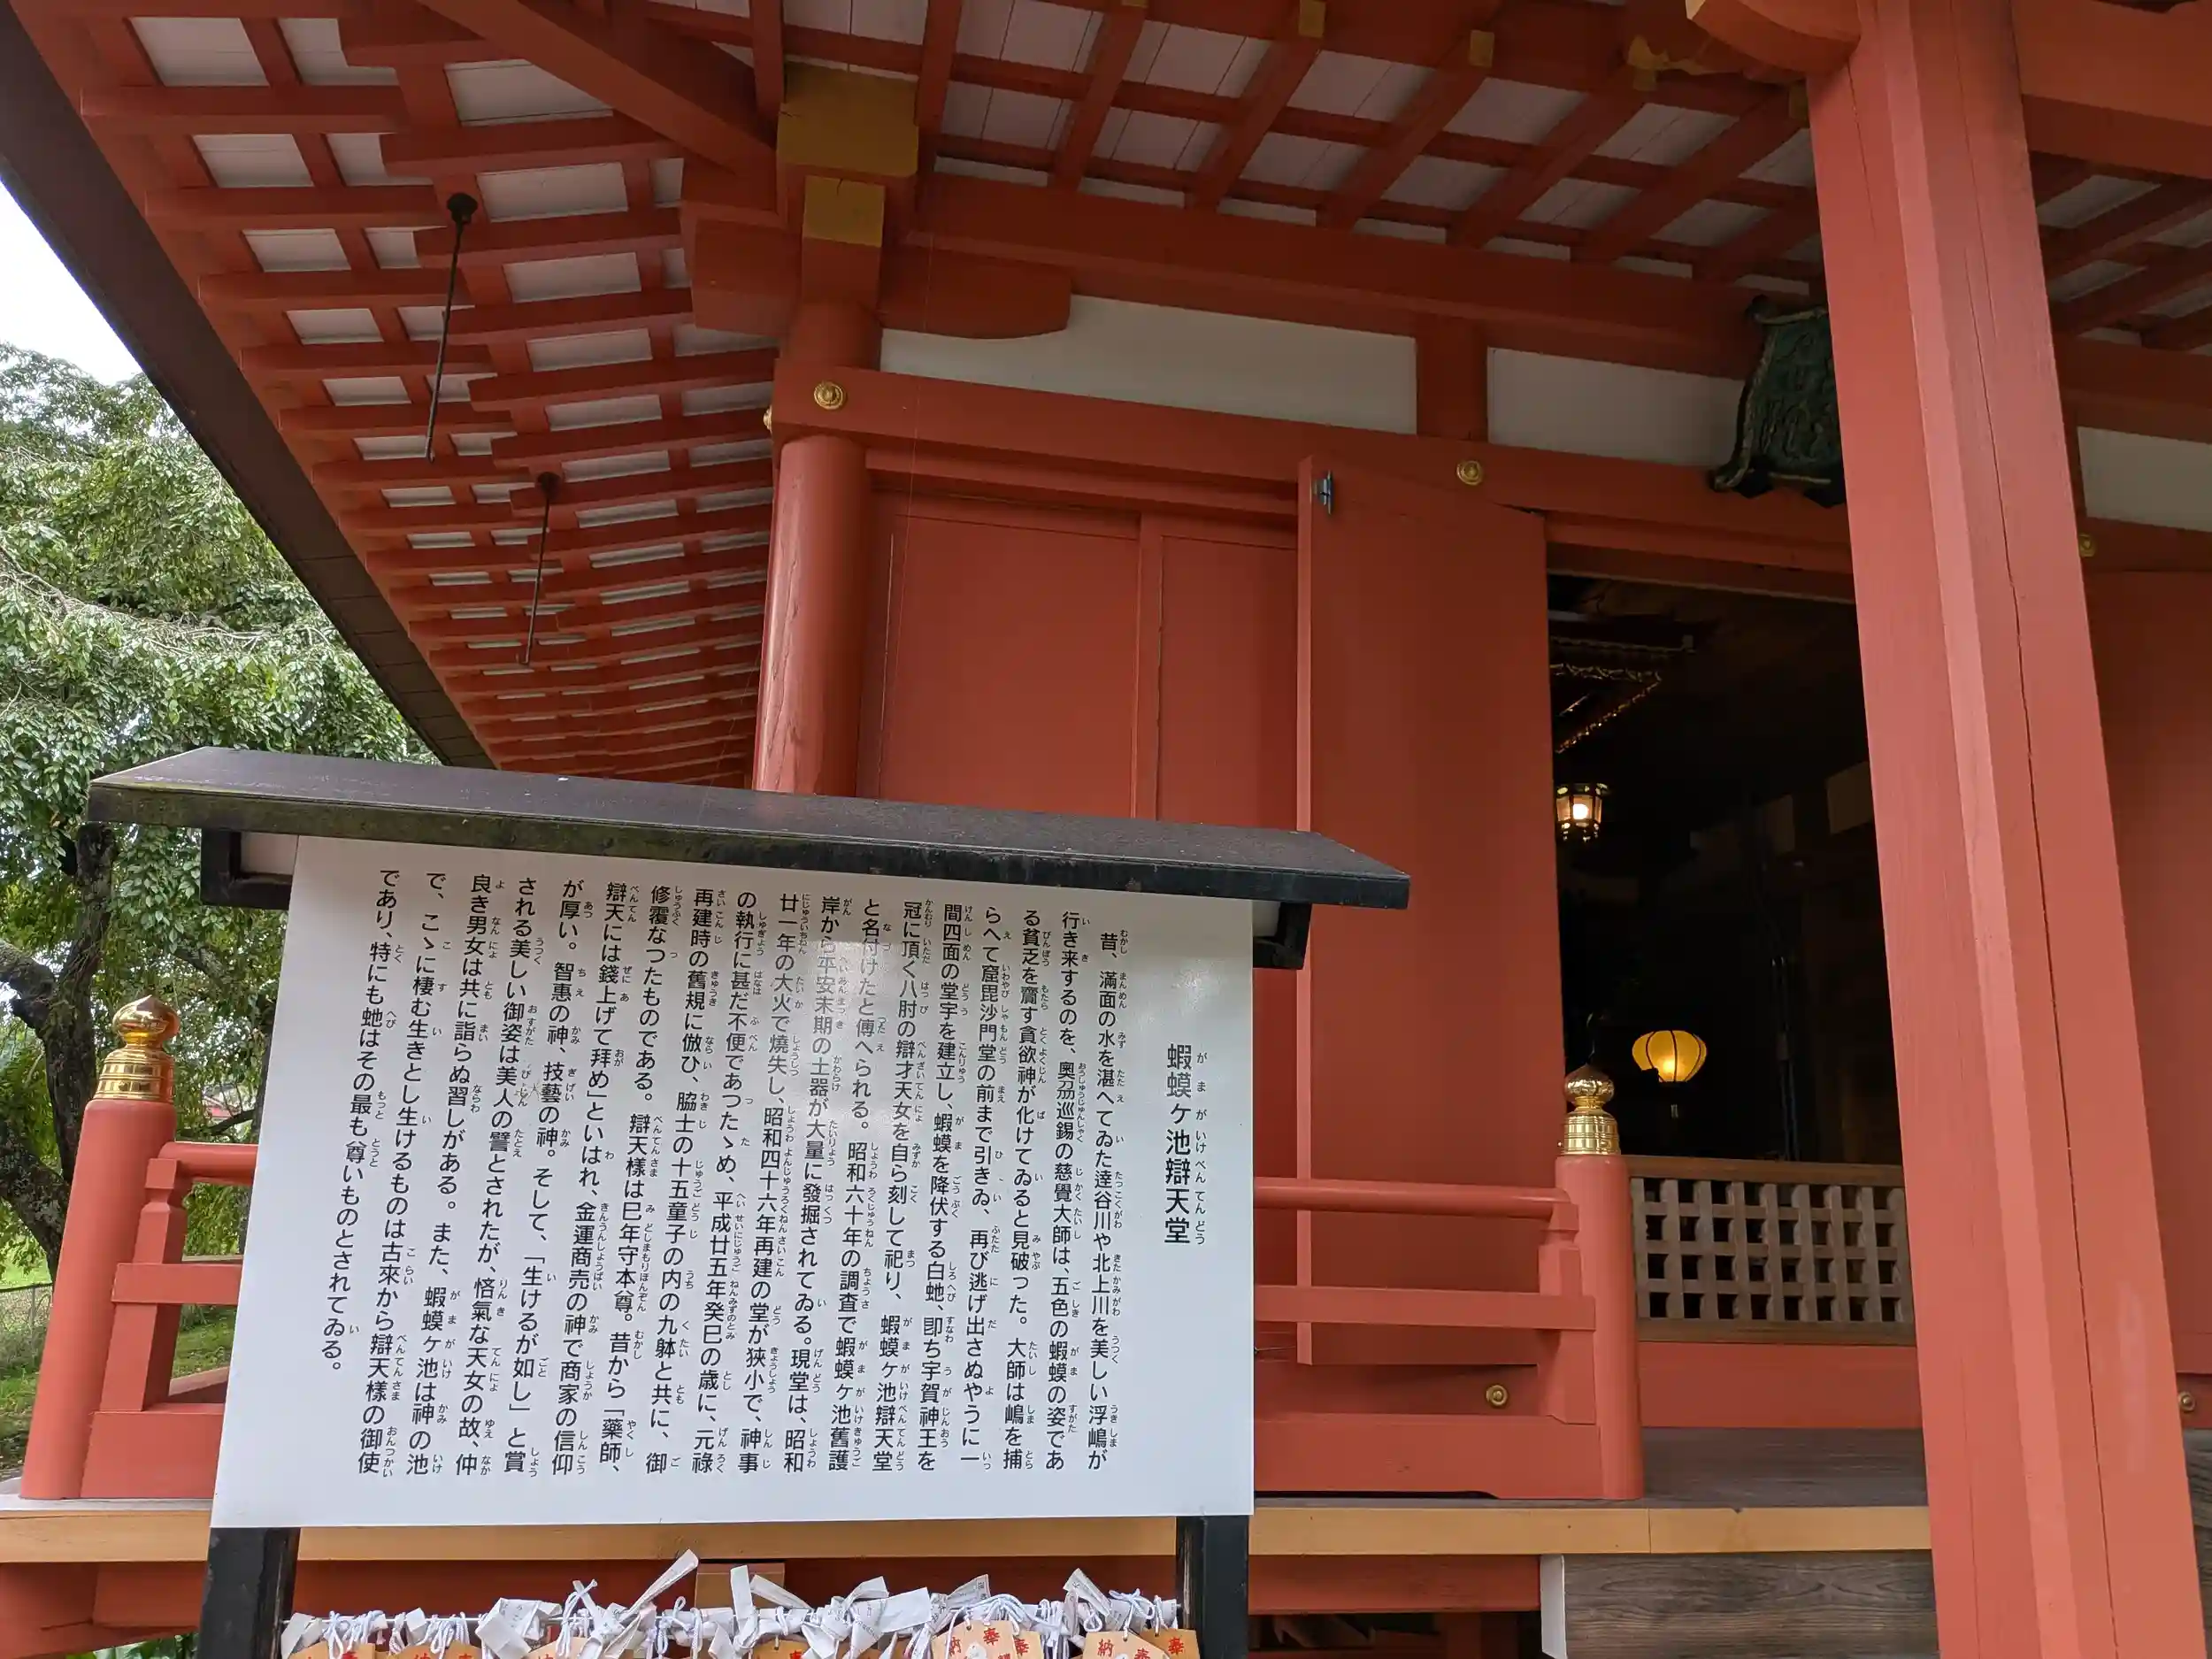 蝦蟆ヶ池辯天堂
昔、滿面の水を湛へてゐた達谷川や北上川を美しい浮嶋が
行き来するのを、奧刕巡錫の慈覺大師は、五色の蝦蟆の姿であ
る貧乏を齎す貪欲神が化けてゐると見破った。大師は嶋を捕
らへて窟毘沙門堂の前まで引きゐ、再び逃げ出さぬやうに一
間四面の堂宇を建立し、蝦蟆を降伏する白虵、卽ち宇賀神王を
冠に頂く八肘の辯才天女を自ら刻して祀り、蝦蟆ヶ池辯天堂
と名付けたと傳へられる。昭和六十年の調査で蝦蟆ヶ池舊護
岸から平安末期の土器が大量に發掘されてゐる。現堂は、昭和
廿一年の大火で燒失し、昭和四十六年再建の堂が狹小で、神事
の執行に甚だ不便であつたゝめ、平成廿五年癸巳の歳に、元祿
再建時の舊規に倣ひ、脇士の十五童子の内の九躰と共に、御
修覆なつたものである。辯天樣は巳年守本尊。昔から「藥師、
辯天には錢上げて拜め」といはれ、金運商売の神で商家の信仰
が厚い。智惠の神、技藝の神。そして、「生けるが如し」と賞
される美しい御姿は美人の譬とされたが、悋氣な天女の故、仲
良き男女は共に詣らぬ習しがある。また、蝦蟆ヶ池は神の池
で、こゝに棲む生きとし生けるものは古來から辯天樣の御使
であり、特にも虵はその最も尊いものとされてゐる。
納 奉 奉
納 奉